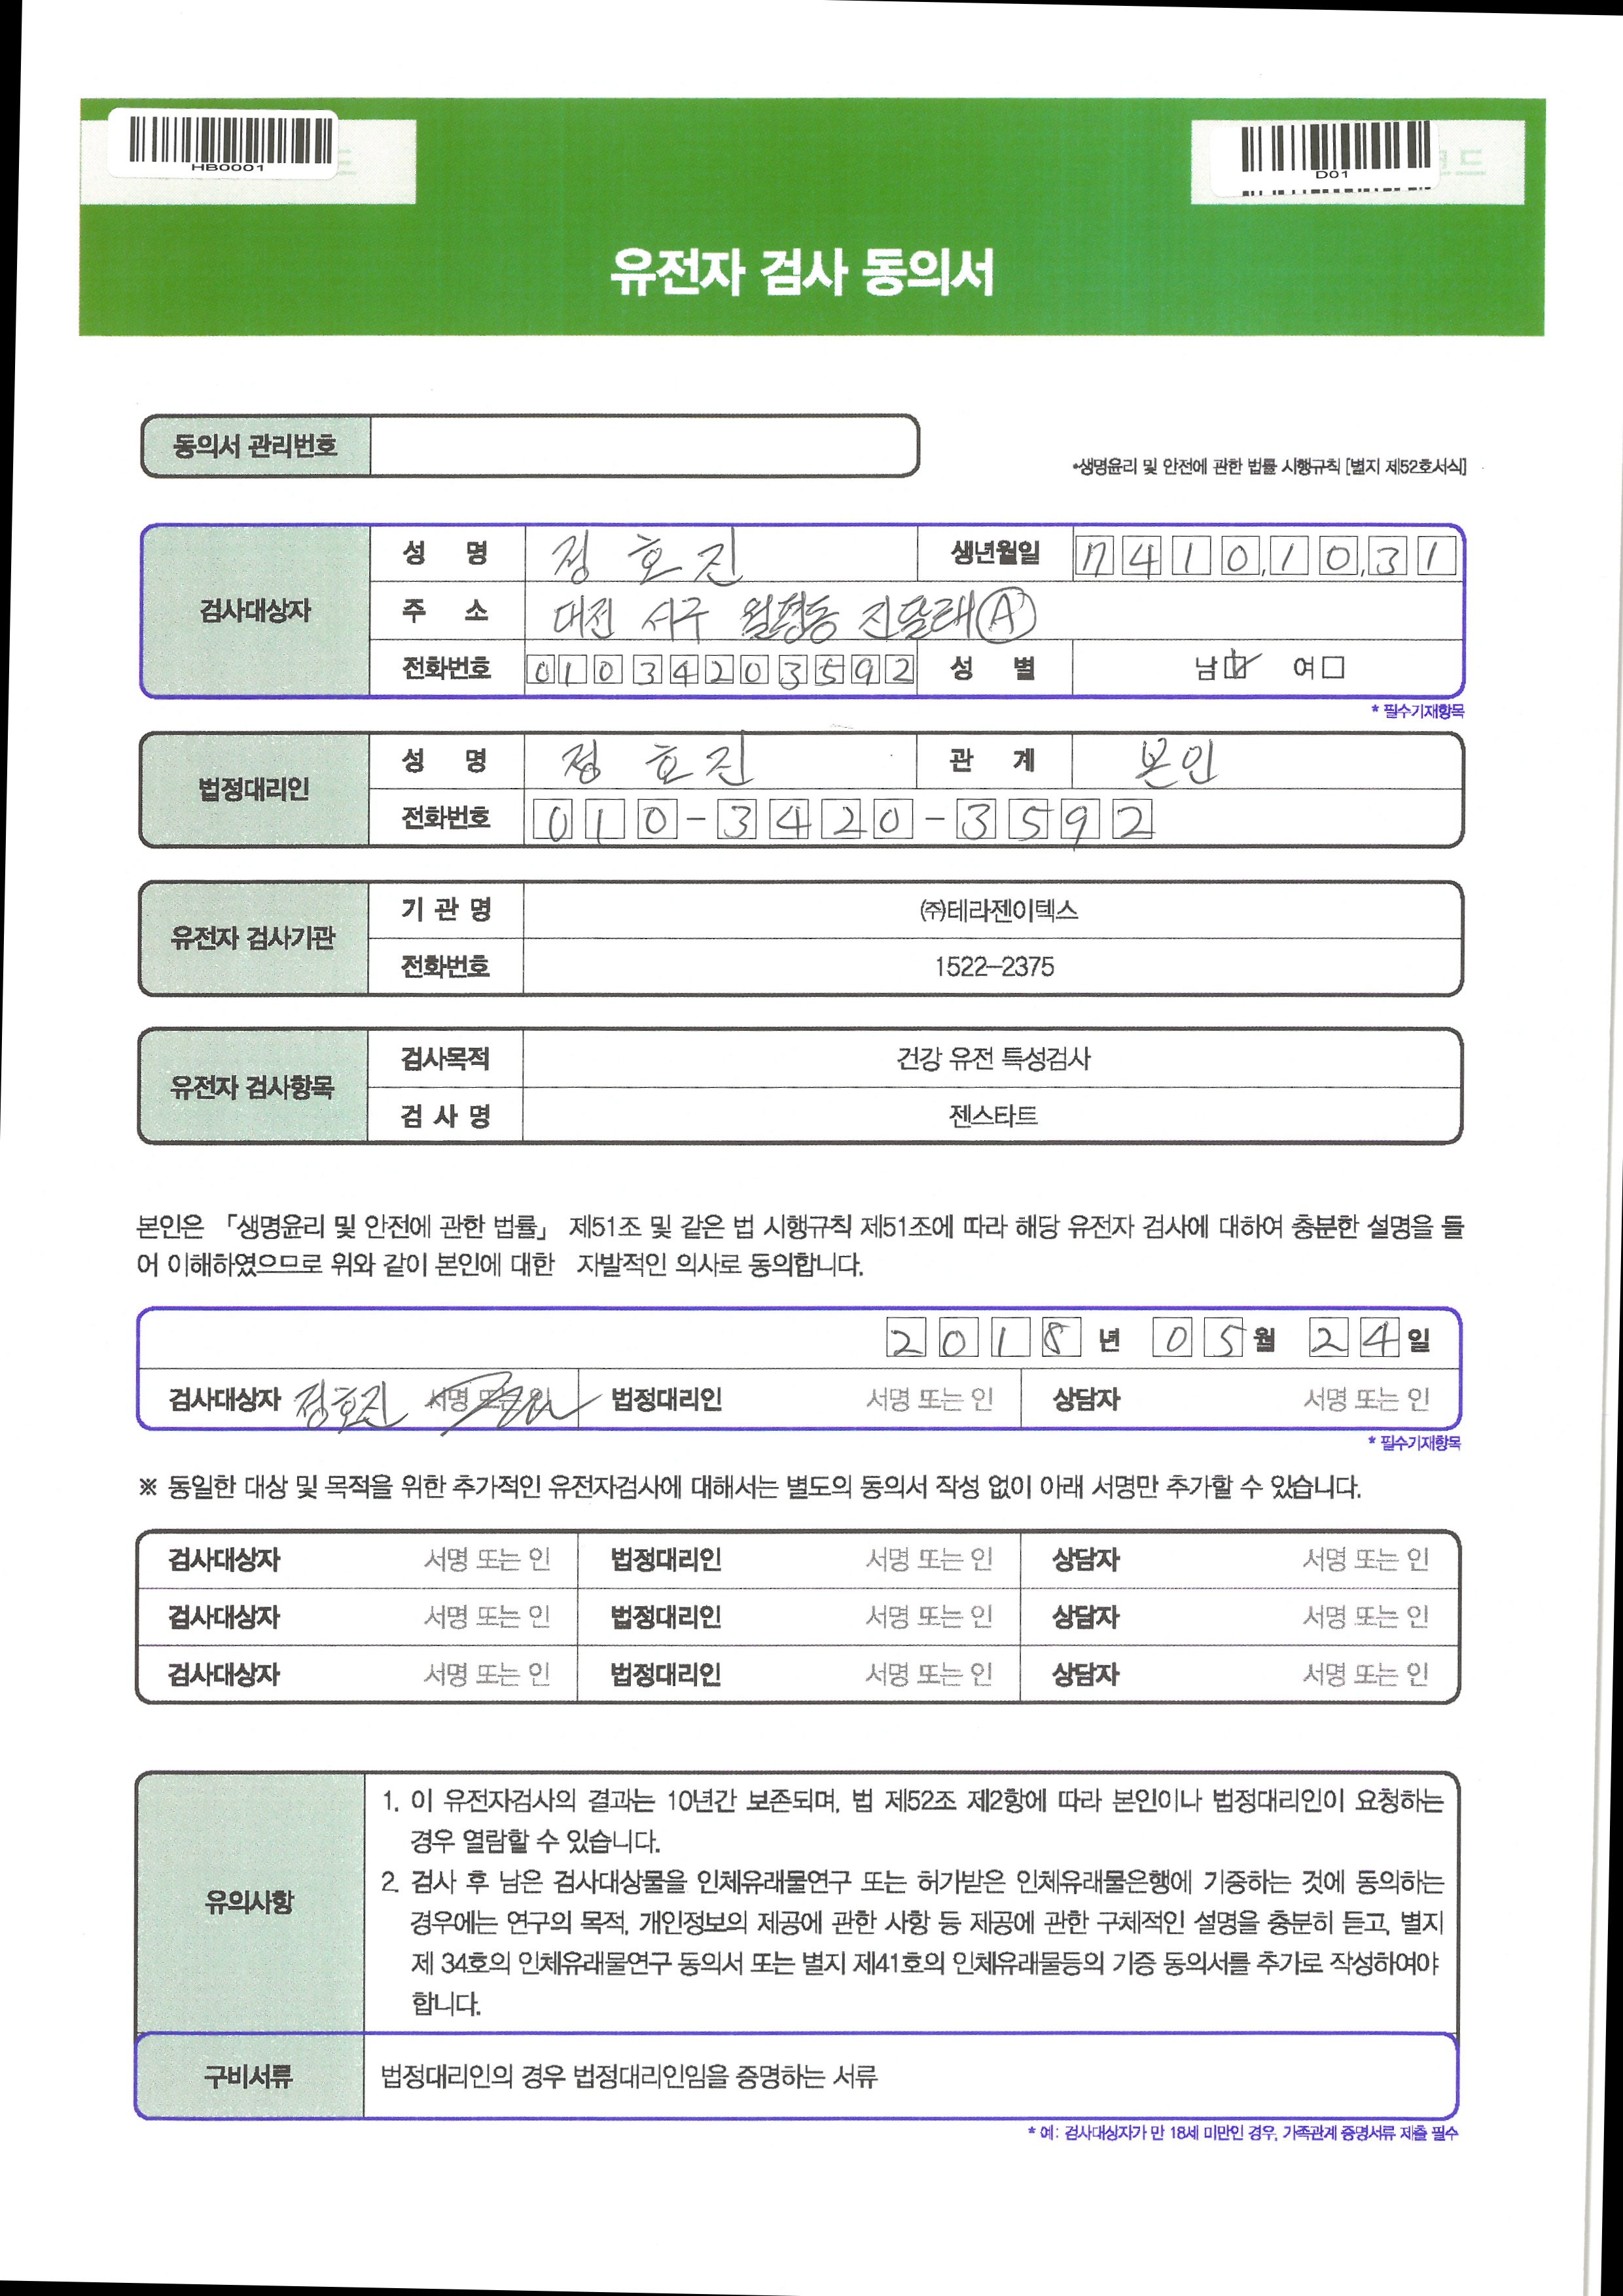 HB0001
D01
유전자 검사 동의서
동의서 관리번호
•생명윤리 및 안전에 관한 법률 시행규칙 [별지 제52호서식]
검사대상자
성 명 정호진 생년월일 7410,10,31
주 소 대전 서구 월평동 진달래Ⓐ
전화번호 01034203592 성 별 남☑ 여□
* 필수기재항목
법정대리인
성 명 정호진 관 계 본인
전화번호 010-3420-3592
유전자 검사기관
기 관 명 ㈜테라젠이텍스
전화번호 1522–2375
유전자 검사항목
검사목적 건강 유전 특성검사
검 사 명 젠스타트
본인은 「생명윤리 및 안전에 관한 법률」 제51조 및 같은 법 시행규칙 제51조에 따라 해당 유전자 검사에 대하여 충분한 설명을 들
어 이해하였으므로 위와 같이 본인에 대한 자발적인 의사로 동의합니다.
2018년 05월 24일
검사대상자 정호진 서명 또는 인 법정대리인 서명 또는 인 상담자 서명 또는 인
* 필수기재항목
※ 동일한 대상 및 목적을 위한 추가적인 유전자검사에 대해서는 별도의 동의서 작성 없이 아래 서명만 추가할 수 있습니다.
검사대상자 서명 또는 인 법정대리인 서명 또는 인 상담자 서명 또는 인
검사대상자 서명 또는 인 법정대리인 서명 또는 인 상담자 서명 또는 인
검사대상자 서명 또는 인 법정대리인 서명 또는 인 상담자 서명 또는 인
유의사항
1. 이 유전자검사의 결과는 10년간 보존되며, 법 제52조 제2항에 따라 본인이나 법정대리인이 요청하는
경우 열람할 수 있습니다.
2. 검사 후 남은 검사대상물을 인체유래물연구 또는 허가받은 인체유래물은행에 기증하는 것에 동의하는
경우에는 연구의 목적, 개인정보의 제공에 관한 사항 등 제공에 관한 구체적인 설명을 충분히 듣고, 별지
제 34호의 인체유래물연구 동의서 또는 별지 제41호의 인체유래물등의 기증 동의서를 추가로 작성하여야
합니다.
구비서류 법정대리인의 경우 법정대리인임을 증명하는 서류
* 예: 검사대상자가 만 18세 미만인 경우, 가족관계 증명서류 제출 필수